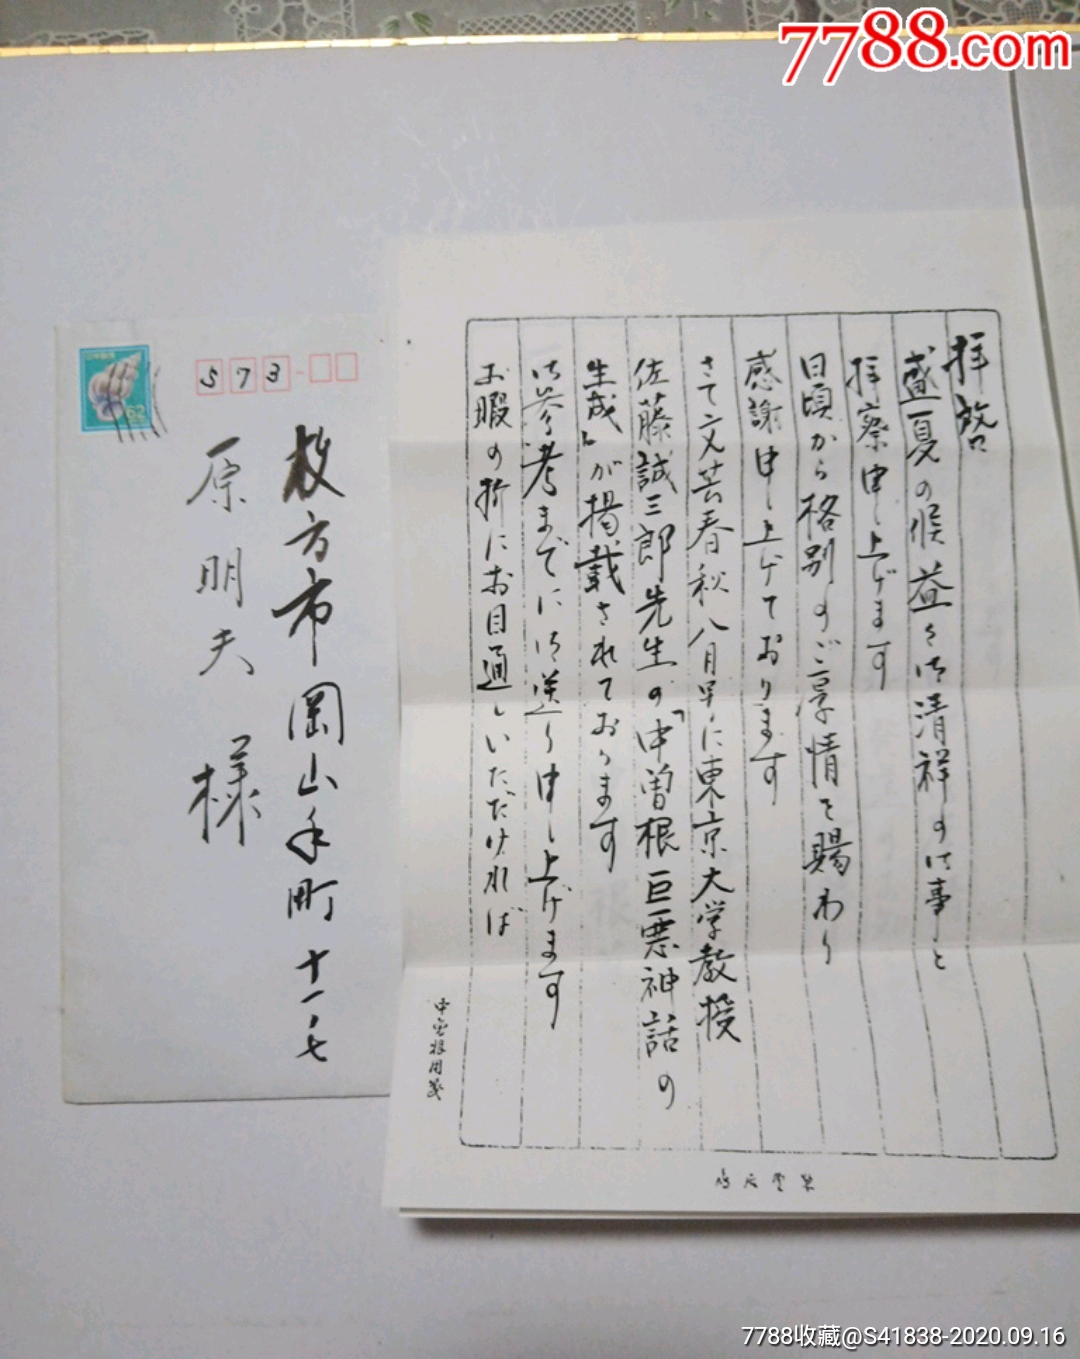 7788.com
日本郵便
62
573-
枚方市岡山手町十一ノ七
原明夫様
拝啓
盛夏の候益々御清祥の御事と
拝察申し上げます
日頃から格別のご厚情を賜わり
感謝申し上げております
さて文芸春秋八月号に東京大学教授
佐藤誠三郎先生の「中曽根巨悪神話の
生成」が掲載されております
御参考までに御送り申し上げます
お暇の折にお目通しいただければ
中曽根用箋
7788收藏@S41838-2020.09.16